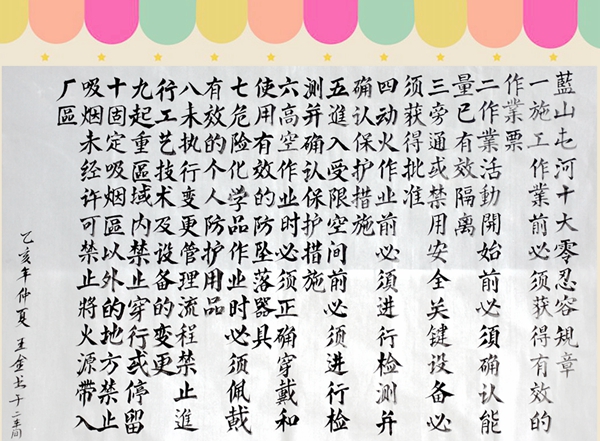 藍山屯河十大零忍容規章
一施工作業前必须获得有效的
作業票
二作業活動開始前必須確认能
量已有效隔离
三旁通或禁用安全关键设备必
须获得批准
四动火作业前必须進行检测并
确认保护措施
五進入受限空间前必须進行检
测并确认保护措施
六高空作业时必须正确穿戴和
使用有效的防坠落器具
七危险化学品作业时必须佩戴
有效的个人防护用品
八未执行变更管理流程禁止進
行工艺技术及设备的变更
九起重區域内禁止穿行或停留
十固定吸烟區以外的地方禁止
吸烟未经许可禁止將火源帶入
厂區
乙亥年仲夏 王金书于二车间